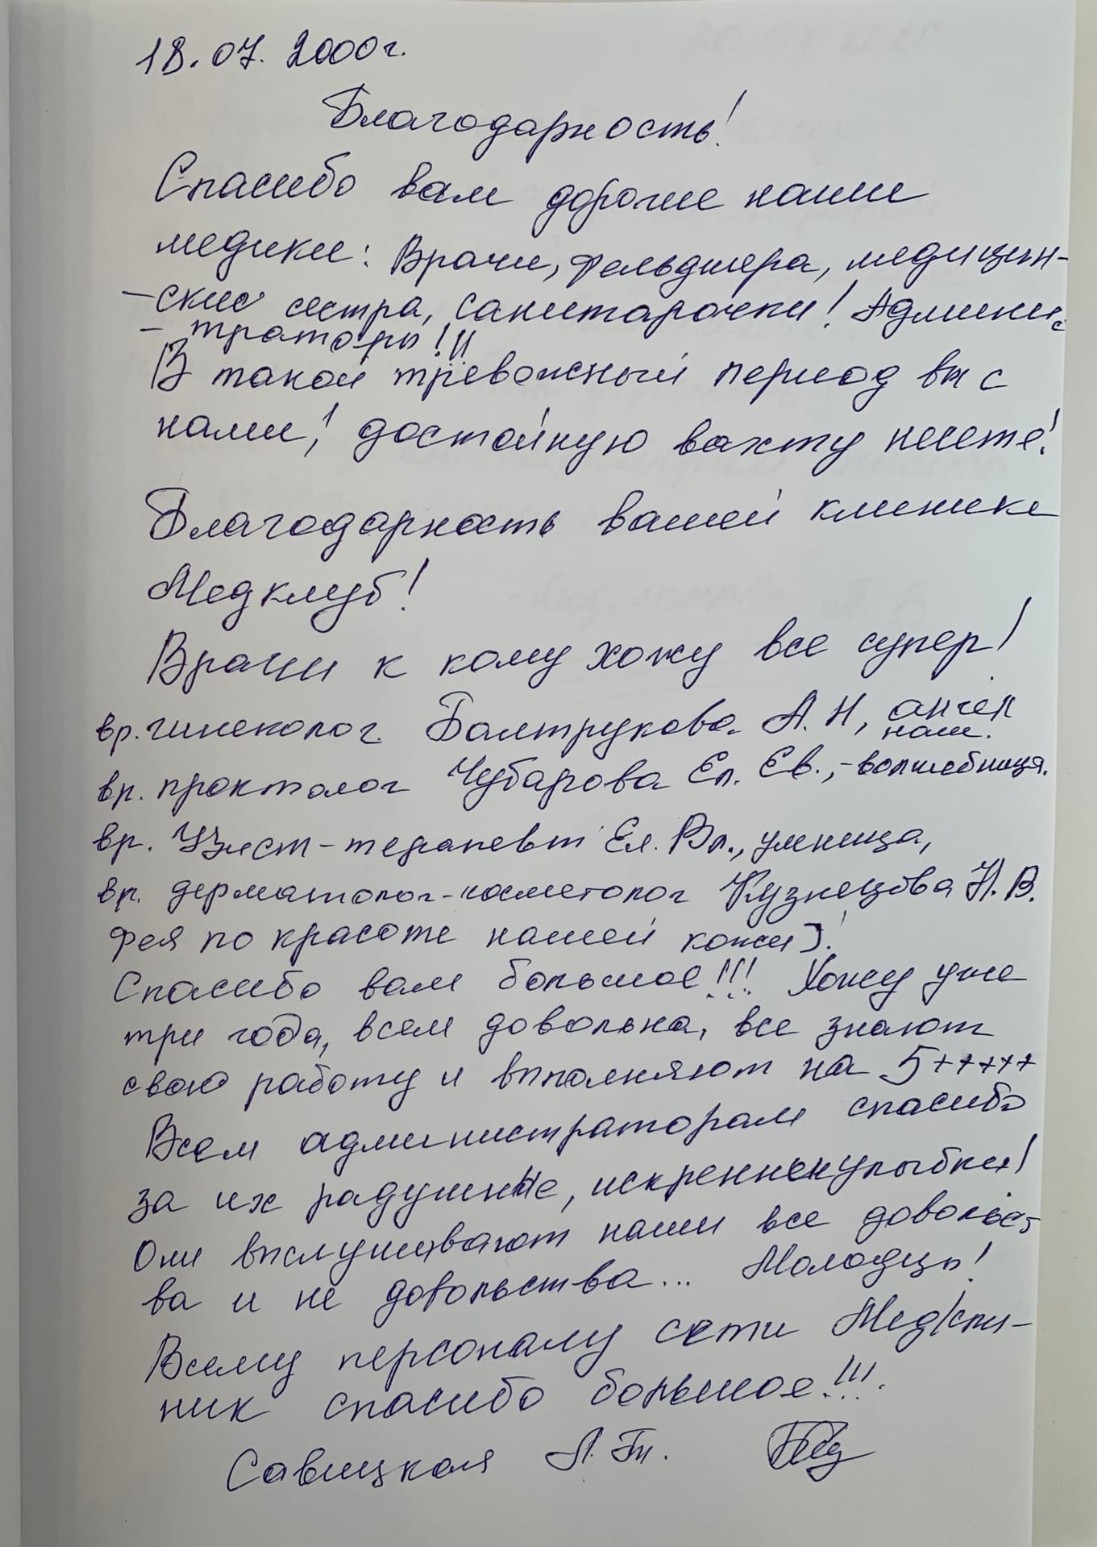 18.07.2000г.
Благодарность!
Спасибо вам дорогие наши
медики: Врачи, фельдшера, медицин-
-ские сестра, санитарочки! Админис
- траторы!!!
В такой тревожный период вы с
нами! достойную вахту несете!
Благодарность вашей клинике
Медклуб!
Врачи к кому хожу все супер!
вр. гинеколог Балтрукова А.Н, ангел
наш.
вр. проктолог Чубарова Ел. Ев., -волшебница.
вр. Узист-терапевт Ел. Вл., умница,
вр. дерматолог-косметолог Кузнецова Н.В.
фея по красоте нашей кожи)!
Спасибо вам большое!!! Хожу уже
три года, всем довольна, все знают
свою работу и выполняют на 5+++++
Всем администраторам спасибо
за их радушные, искренние улыбки!
Они выслушивают наши все довольст
ва и не довольства... Молодцы!
Всему персоналу сети Мед
ник спасибо большое!!!
Савицкая Л.